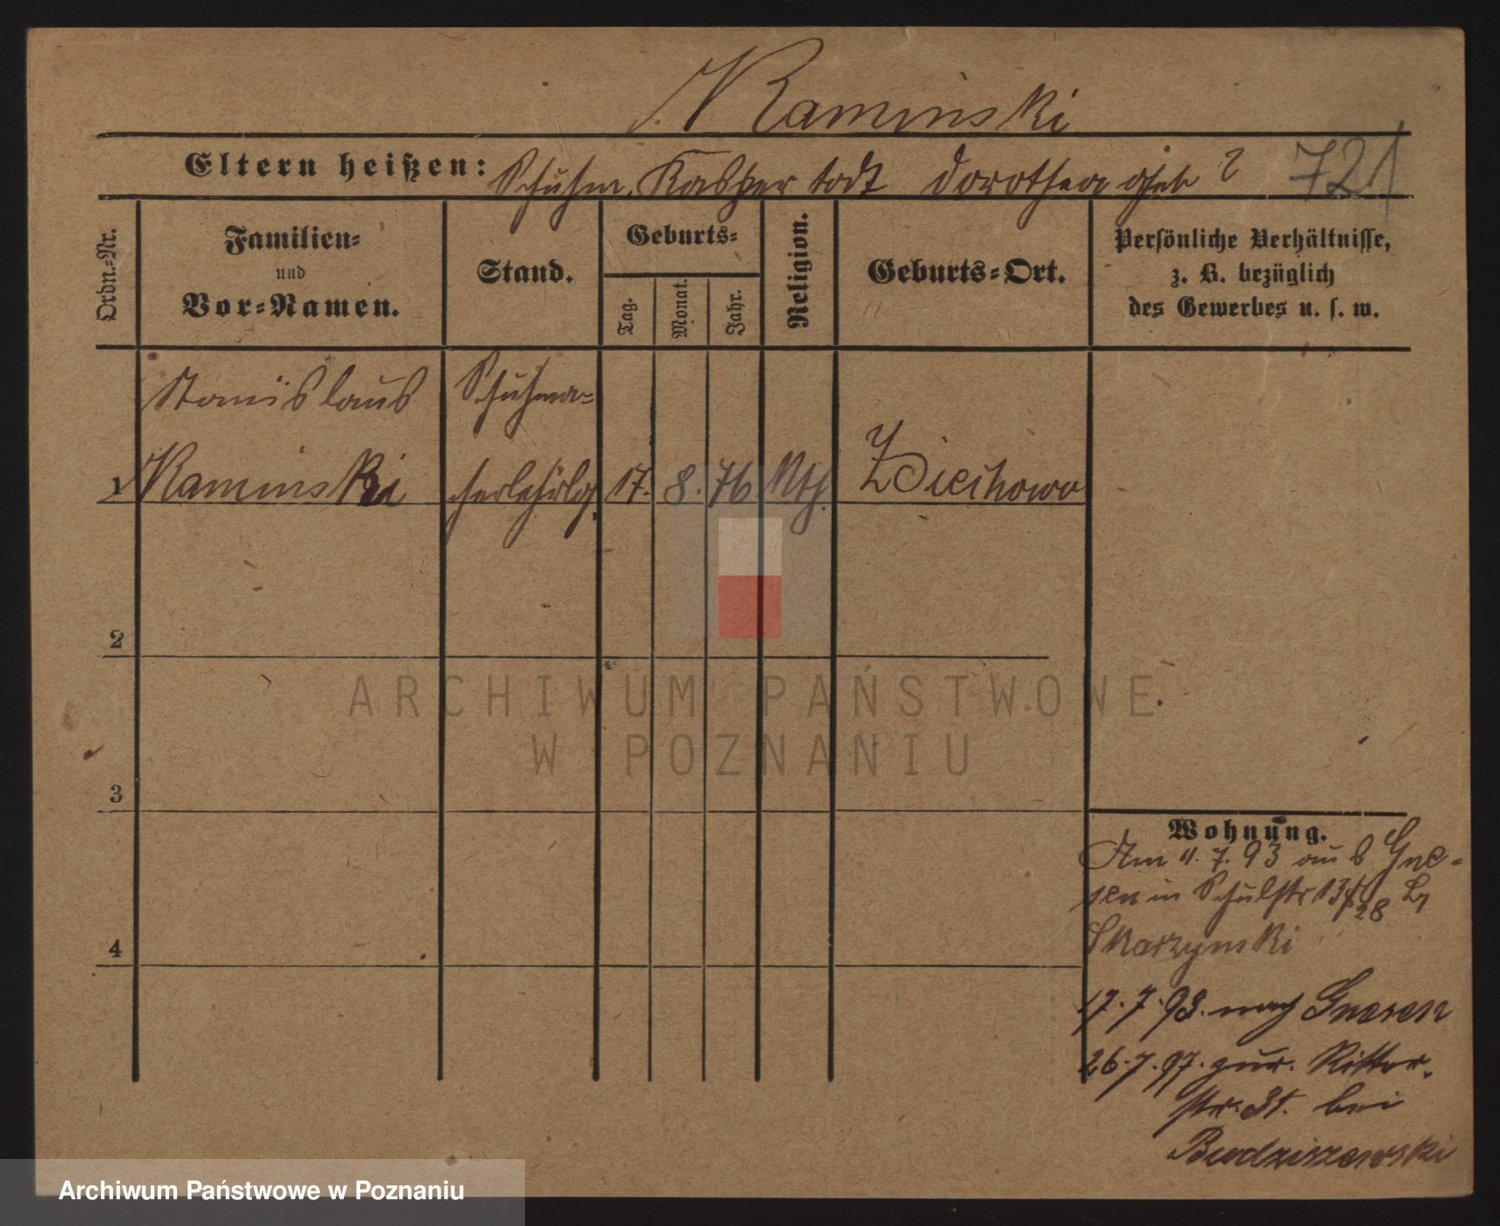 Kaminski
Eltern heißen: Schuhm. Kasper todt Dorothea geb ?
721
Ordn.-Nr.
Familien-
und
Vor-Namen.
Stand.
Geburts-
Tag.
Monat.
Jahr.
Religion.
Geburts-Ort.
Persönliche Verhältnisse,
z. B. bezüglich
des Gewerbes u. s. w.
Stanislaus Schuhma-
1 Kaminski cherlehrlg. 17. 8. 76 Kth. Zdiechowo
2
3
4
ARCHIWUM PAŃSTWOWE
W POZNANIU
Wohnung.
Am 11.7.93 aus Gne-
sen in Schulstr 13 b/
Skarzynski
17.7.93. nach Gnesen
26.7.97. zur. Ritter-
str. 31. bei
Budziszewski
Archiwum Państwowe w Poznaniu